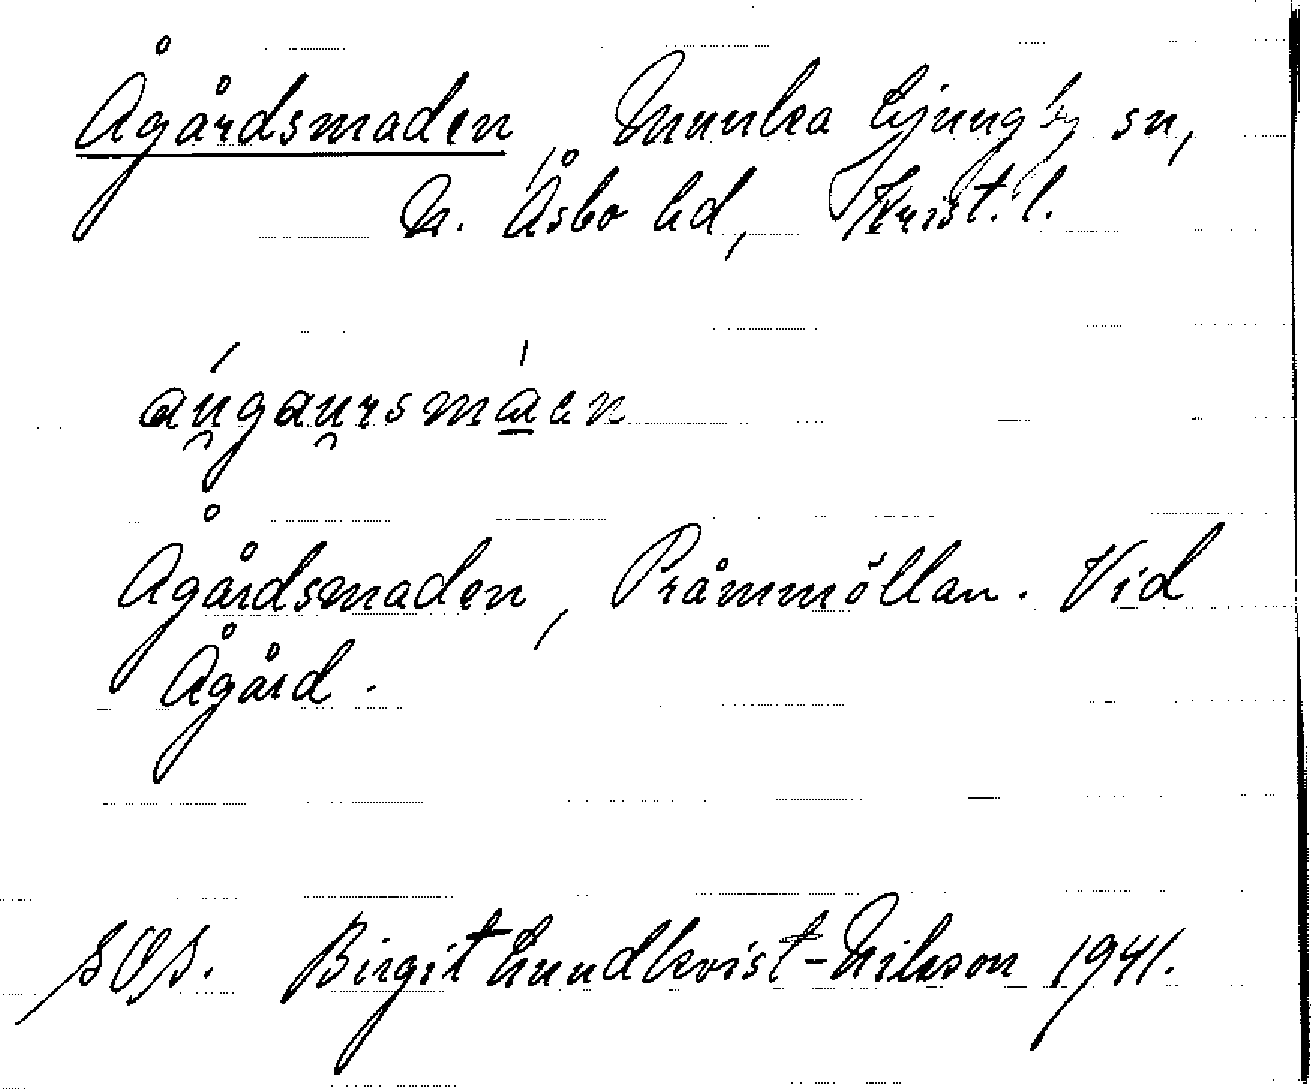 Ågårdsmaden, Munka Ljungby sn,
N. Åsbo hd, Krist. l.
áu̯gau̯rsmàen
Ågårdsmaden, Pråmmöllan. Vid
Ågård.
SOS. Birgit Lundkvist-Nilsson 1941.